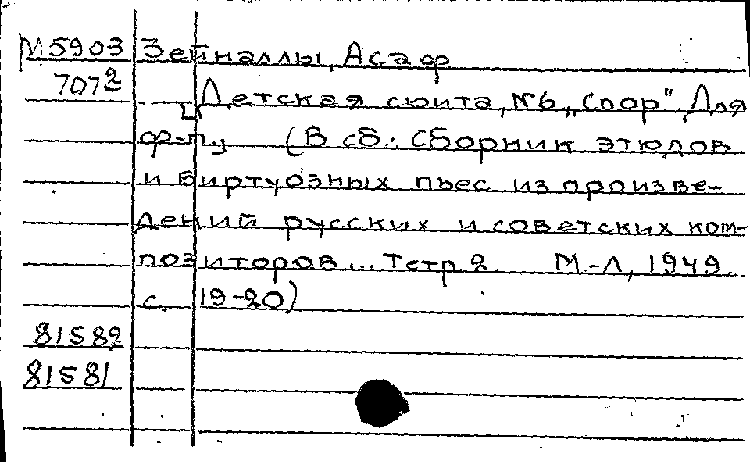 М5903 Зейналлы, Асаф
7072 [Детская сюита, №6, „Спор". Для
ф-п.; (В сб.: Сборник этюдов
и виртуозных пьес из произве-
дений русских и советских ком-
позиторов... Тетр 2 М-Л, 1949
с. 19-20)
81582
81581